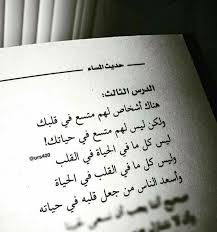 حديث المساء
الدرس الثالث:
هناك أشخاص لهم متسع في قلبك
ولكن ليس لهم متسع في حياتك!
ليس كل ما في الحياة في القلب
@urs420
وليس كل ما في القلب في الحياة
وأسعد الناس من جعل قلبه في حياته